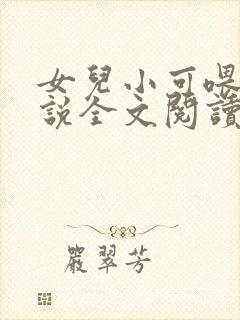 女兒小可喂
說全文閱讀
嚴翠芳